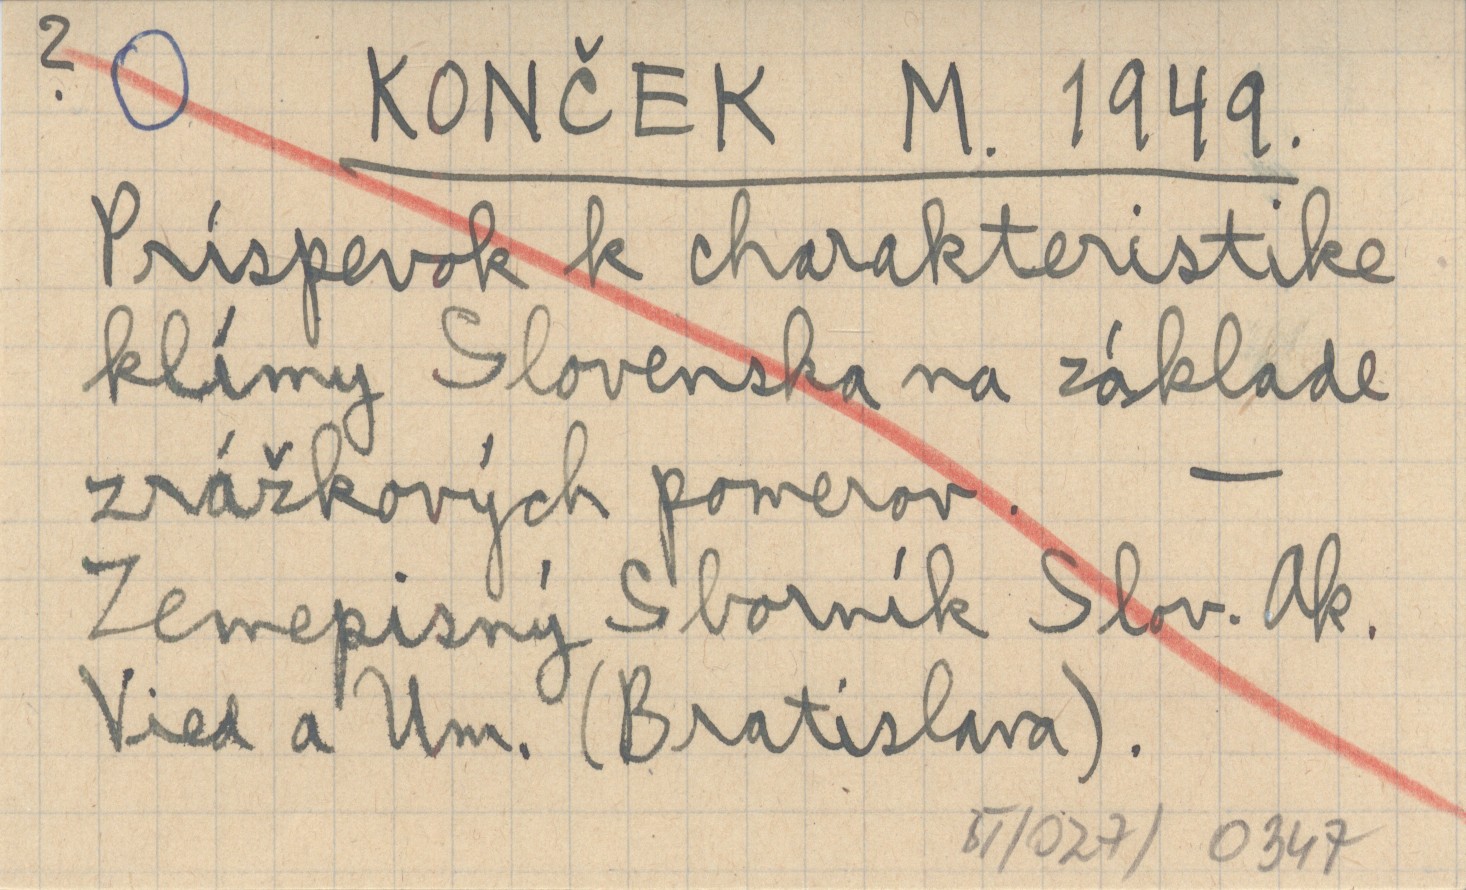 ? O KONČEK M. 1949.
Príspevok k charakteristike
klímy Slovenska na základe
zrážkových pomerov. —
Zemepisný Sborník Slov. Ak.
Vied a Um. (Bratislava).
/027/ 0347